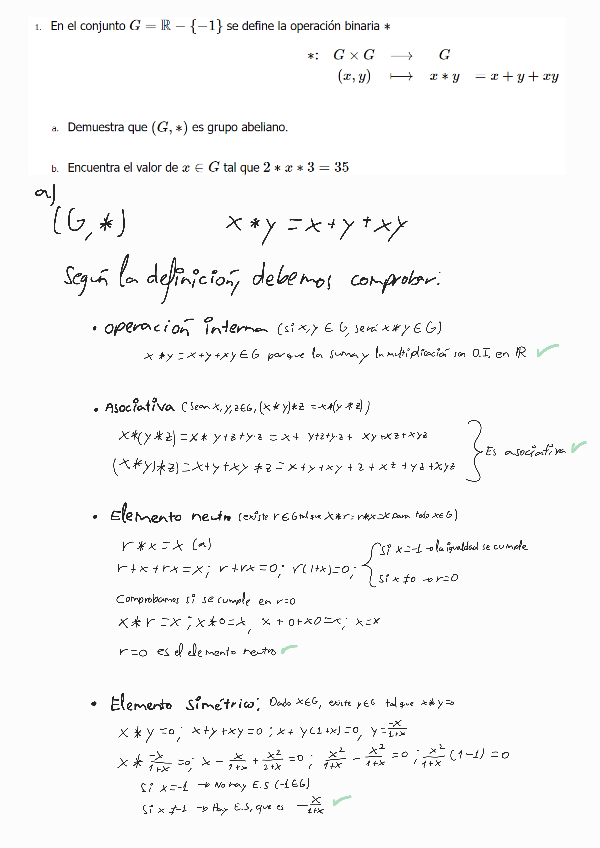 1. En el conjunto G = ℝ − {−1} se define la operación binaria *
*: G × G ⟶ G
(x, y) ⟼ x * y = x + y + xy
a. Demuestra que (G, *) es grupo abeliano.
b. Encuentra el valor de x ∈ G tal que 2 * x * 3 = 35
a)
(G, *) x * y = x + y + xy
Según la definición, debemos comprobar:
• Operación interna (si x, y ∈ G, será x * y ∈ G)
x * y = x + y + xy ∈ G porque la suma y la multiplicación son O.I. en ℝ ✓
• Asociativa (Sean x, y, z ∈ G, (x * y) * z = x * (y * z))
x * (y * z) = x * y + z + y·z = x + y + z + y·z + xy + xz + xyz
(x * y) * z) = x + y + xy * z = x + y + xy + z + xz + yz + xyz
Es asociativa ✓
• Elemento neutro (existe r ∈ G tal que x * r = r * x = x para todo x ∈ G)
r * x = x (a)
r + x + rx = x; r + rx = 0; r(1+x) = 0;
Si x = -1 → la igualdad se cumple
Si x ≠ 0 → r = 0
Comprobamos si se cumple en r = 0
x * r = x; x * 0 = x, x + 0 + x0 = x; x = x
r = 0 es el elemento neutro ✓
• Elemento simétrico; Dado x ∈ G, existe y ∈ G tal que x * y = 0
x * y = 0; x + y + xy = 0; x + y(1+x) = 0, y = -x/1+x
x * -x/1+x = 0; x - x/1+x + x²/1+x = 0; x²/1+x - x²/1+x = 0; x²/1+x (1-1) = 0
Si x = -1 → No hay E.S (-1 ∈ G)
Si x ≠ -1 → Hay E.S, que es -x/1+x ✓